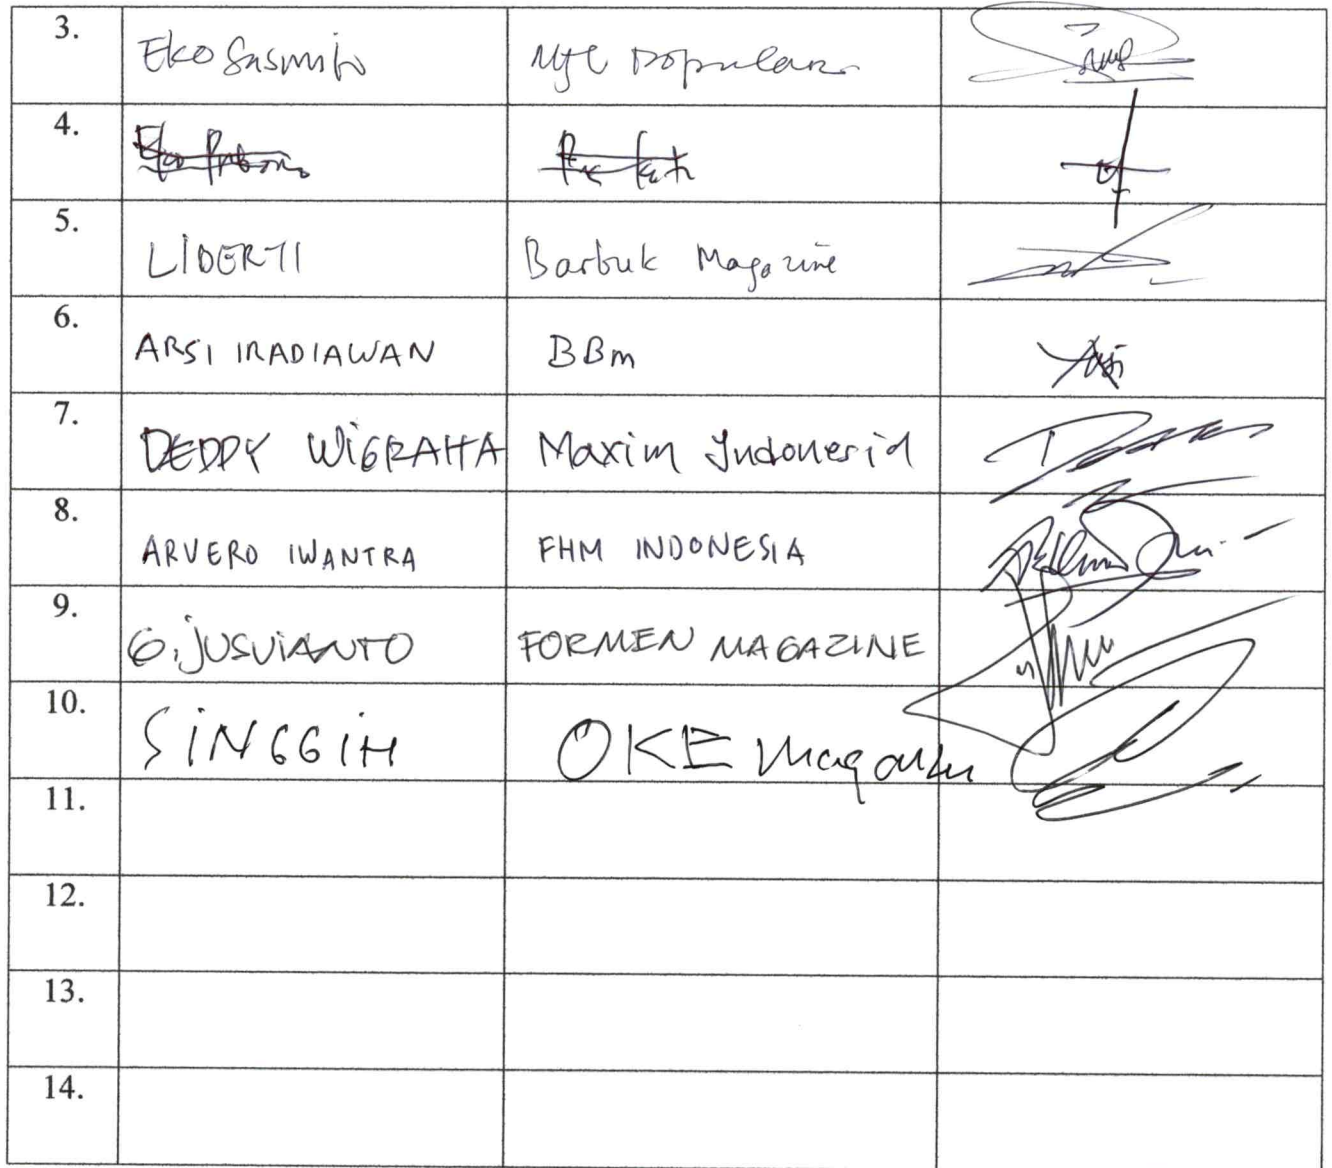 3. Eko Sasmito Mjl Popular
4.
5. LIDERTI Barbuk Magazine
6. ARSI IRADIAWAN BBm
7. DEDDY WIGRAHA Maxim Indonesia
8. ARVERO IWANTRA FHM INDONESIA
9. G. JUSVIANTO FORMEN MAGAZINE
10. SINGGIH OKE Magazine
11.
12.
13.
14.